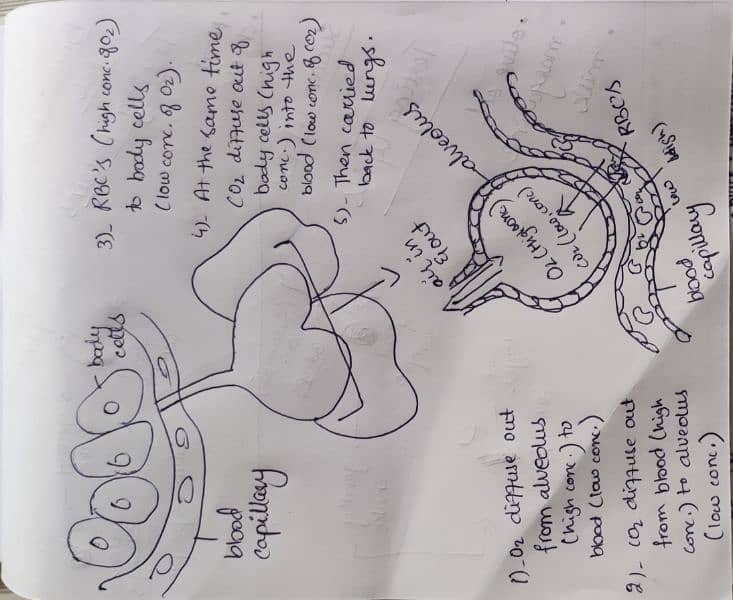 body
cells
blood
capillary
3)- RBC's (high conc. of O2)
to body cells
(low conc. of O2).
4)- At the same time
CO2 diffuse out of
body cells (high
conc.) into the
blood (low conc. of CO2)
5)- Then carried
back to lungs.
alveolus
air in
& out
O2 (high conc)
CO2 (low conc)
RBC's
blood
capillary
1)- O2 diffuse out
from alveolus
(high conc.) to
blood (low conc.)
2)- CO2 diffuse out
from blood (high
conc.) to alveolus
(low conc.)